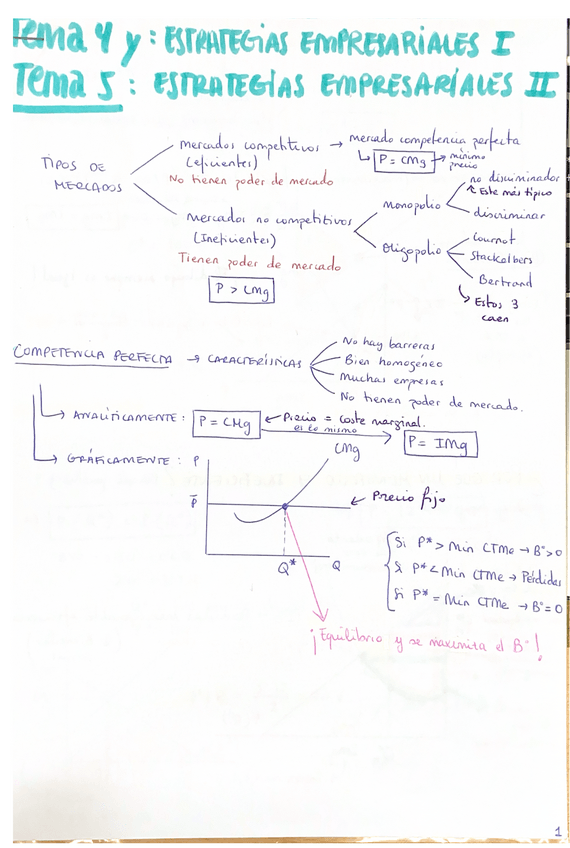 Tema 4 y : ESTRATEGIAS EMPRESARIALES I
Tema 5 : ESTRATEGIAS EMPRESARIALES II
TIPOS DE MERCADOS
mercados competitivos → mercado competencia perfecta
(eficientes)
P = CMg → mínimo precio
No tienen poder de mercado
mercados no competitivos
(Ineficientes)
Tienen poder de mercado
P > CMg
monopolio
no discriminador
Este más típico
discriminar
Oligopolio
Cournot
Stackalbers
Bertrand
Estos 3 caen
COMPETENCIA PERFECTA → CARACTERÍSTICAS
No hay barreras
Bien homogéneo
Muchas empresas
No tienen poder de mercado.
→ ANALÍTICAMENTE: P = CMg ← Precio = coste marginal.
es lo mismo → P = IMg
→ GRÁFICAMENTE: P
CMg
P̄
← Precio fijo
Q* Q
Si P* > Min CTMe → Bº > 0
Si P* < Min CTMe → Pérdidas
Si P* = Min CTMe → Bº = 0
¡Equilibrio y se maximiza el Bº!
1